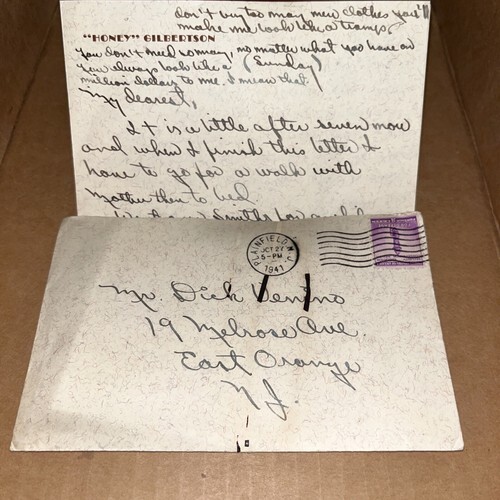 don't buy too many new clothes you'll
make me look like a tramp.
"HONEY" GILBERTSON
you don't need so many, no matter what you have on
you always look like a (Sunday)
million dollars to me. I mean that.
My dearest,
It is a little after seven now
and when I finish this letter I
have to go for a walk with
Mother then to bed.
PLAINFIELD N.J.
OCT 27
5-PM
1941
Mr. Dick Venino
19 Melrose Ave.
East Orange
N.J.